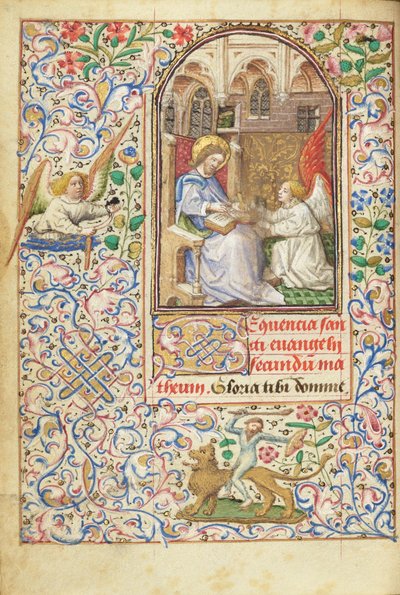 Sequencia san
cti euangelij
secundũ ma
theum. Gloria tibi domine